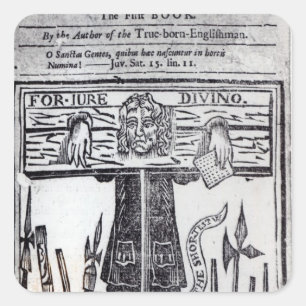 The First BOOK.
By the Author of the True-born-Englishman.
O Sanctas Gentes, quibus hæc nascuntur in hortis
Numina! Juv. Sat. 15. lin. 11.
FOR·IURE DIVINO.
THE SHORTEST